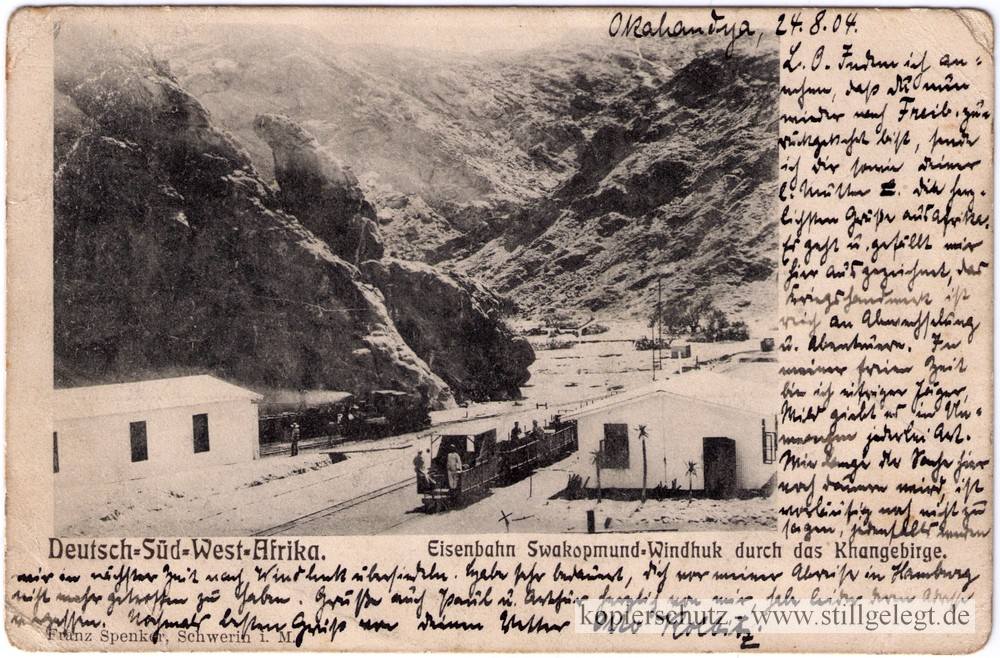 Okahandya, 24.8.04.
L. O. Indem ich an-
nehmen, daß du nun
wieder nach Freib. zu-
rückgekehrt bist, sende
ich dir sowie deiner
l. Mutter die herz-
lichsten Grüße aus Afrika.
Es geht u. gefällt mir
hier ausgezeichnet, das
Kriegshandwerk ist
reich an Abwechselung
u. Abenteuern. In
meiner freien Zeit
bin ich eifriger Jäger,
Wild giebt es in
jederlei Art.
Wie lange die Sache hier
noch dauern wird, ist
vorläufig noch nicht zu
sagen, jedenfalls werden
Deutsch-Süd-West-Afrika.
Eisenbahn Swakopmund-Windhuk durch das Khangebirge.
wir in nächster Zeit nach Windhuk übersiedeln. Habe sehr bedauert, dich vor meiner Abreise in Hamburg
nicht mehr getroffen zu haben. Grüße auch Paul u. Arthur herzlich von mir, habe leider deren Adresse
vergessen. Nochmals besten Gruß von deinem Vetter Otto
Franz Spenker, Schwerin i. M.
kopierschutz / www.stillgelegt.de